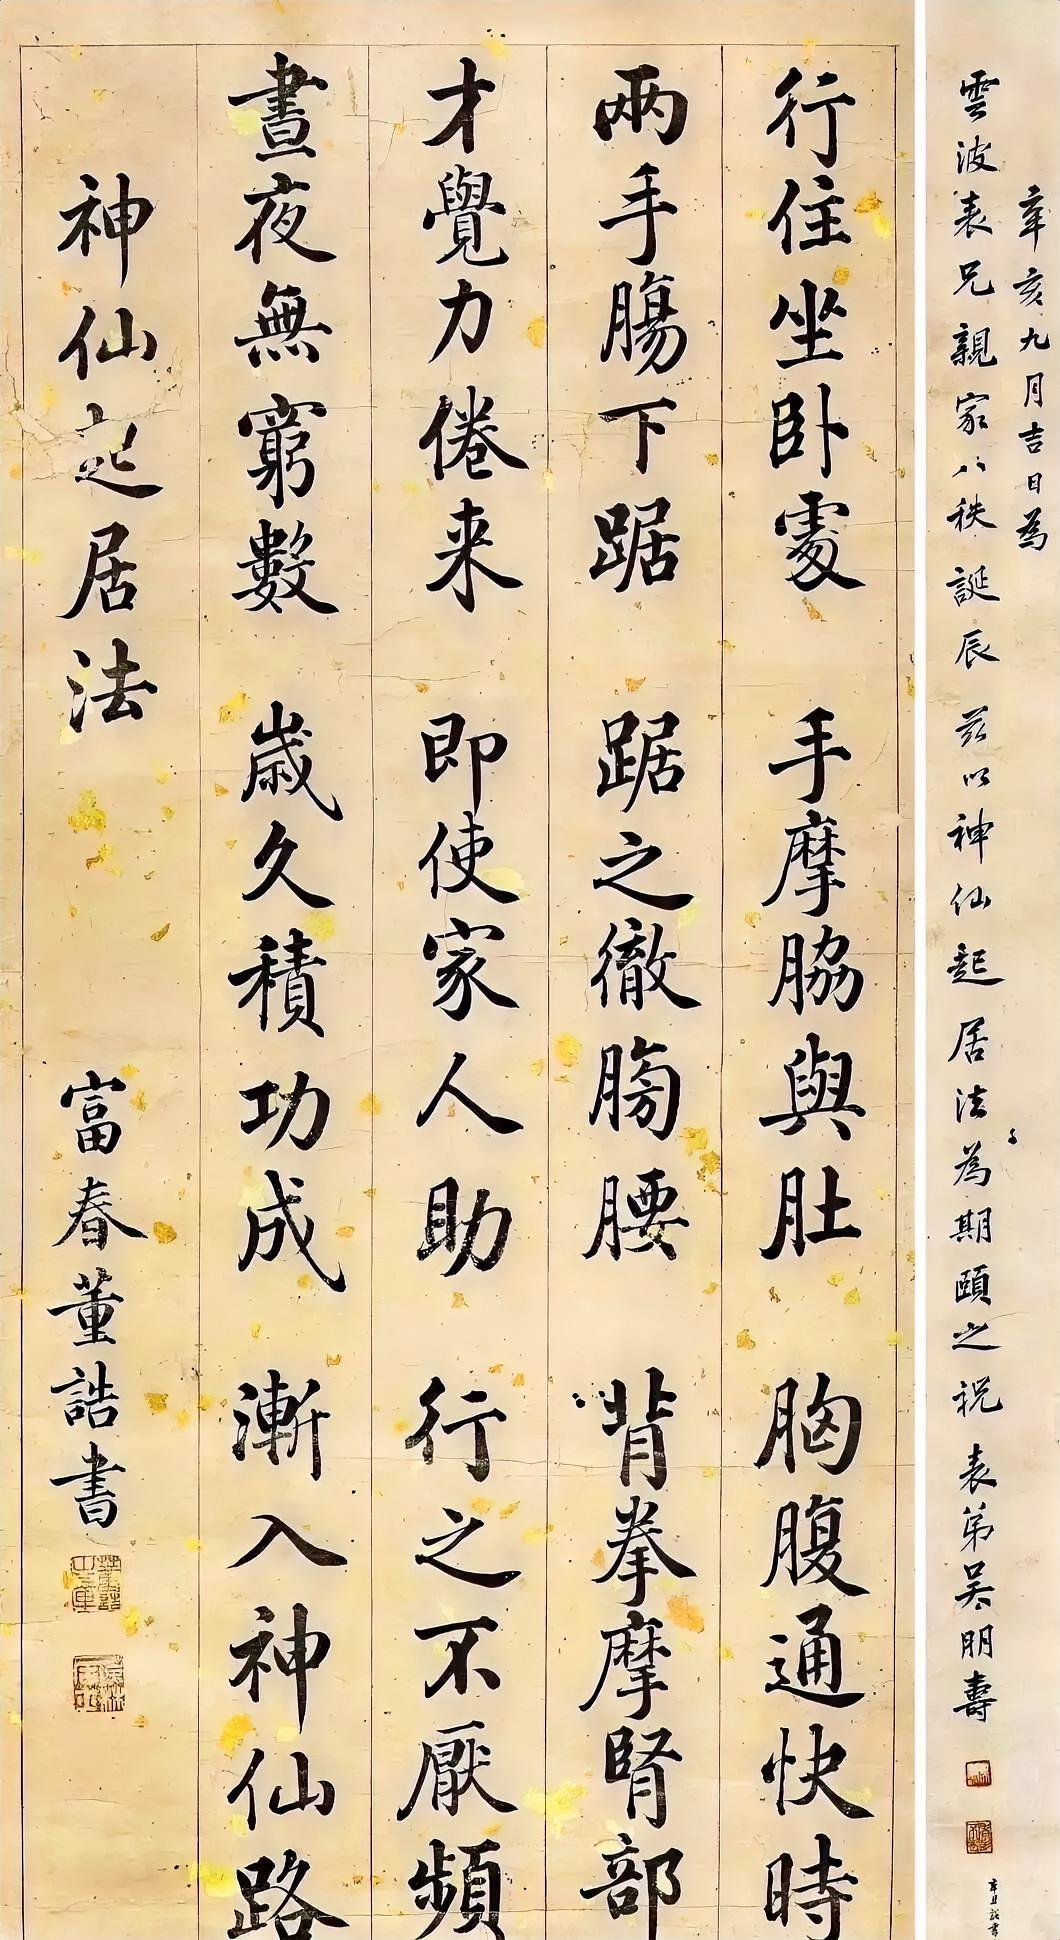 辛亥九月吉日為
雲波表兄親家八秩誕辰茲以神仙起居法為期頤之祝 表弟吴朋壽
行住坐卧處 手摩脇與肚 胸腹通快時
兩手腸下踞 踞之徹膀腰 背拳摩腎部
才覺力倦来 即使家人助 行之不厭頻
晝夜無窮數 歲久積功成 漸入神仙路
神仙起居法 富春董誥書